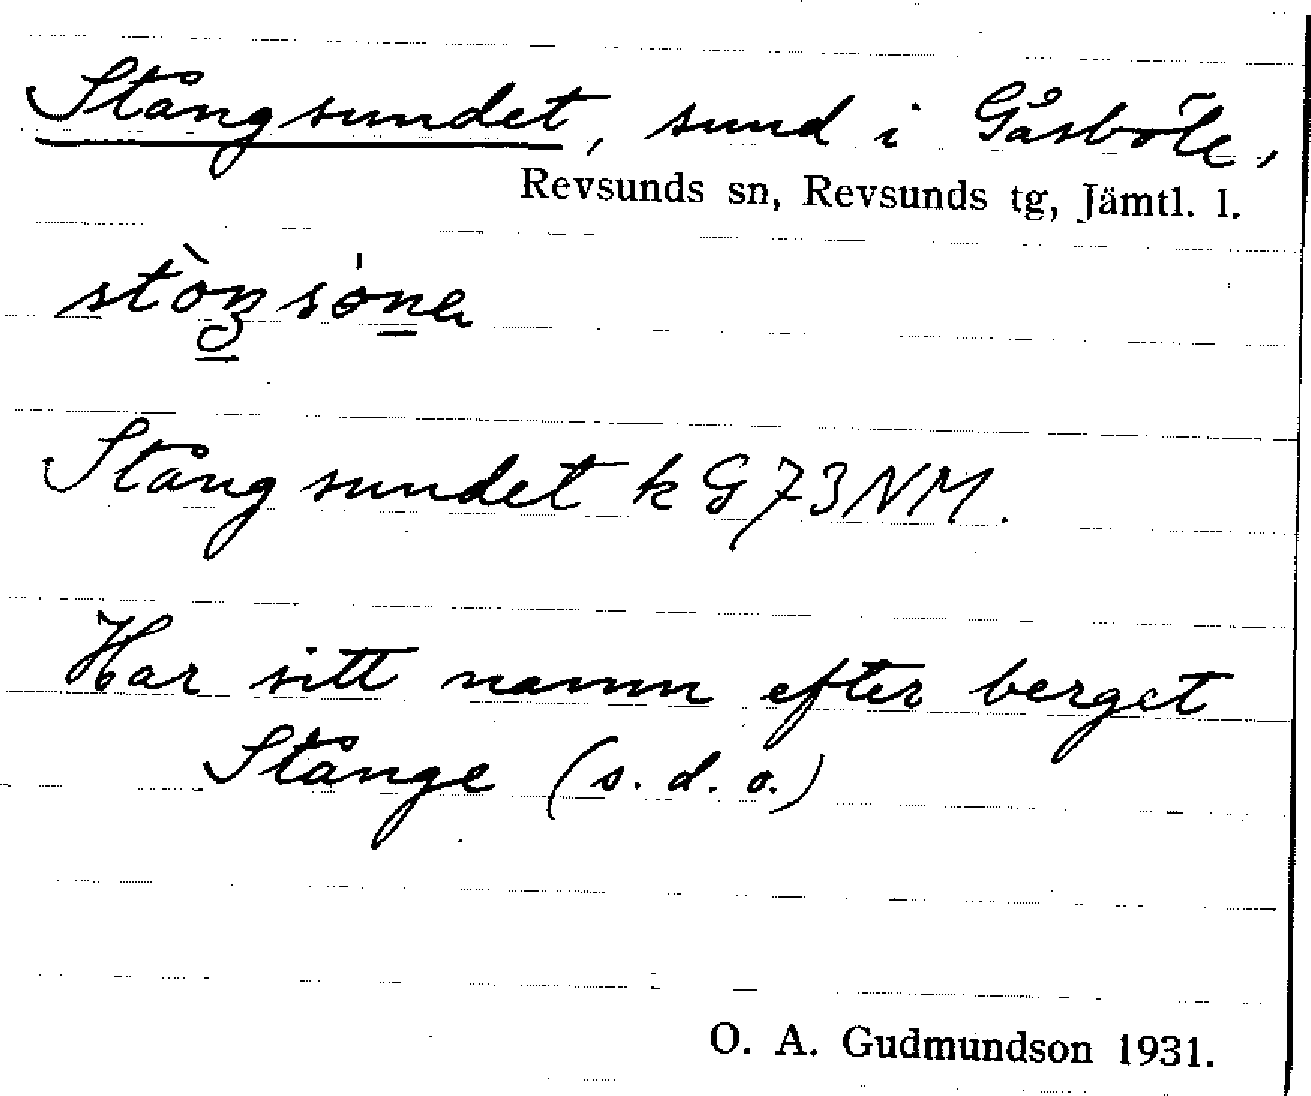 Stångsundet, sund i Gåsböle,
Revsunds sn, Revsunds tg, Jämtl. l.
Stångsundet k G73NM.
Har sitt namn efter berget
Stånge (s. d. o.)
O. A. Gudmundson 1931.